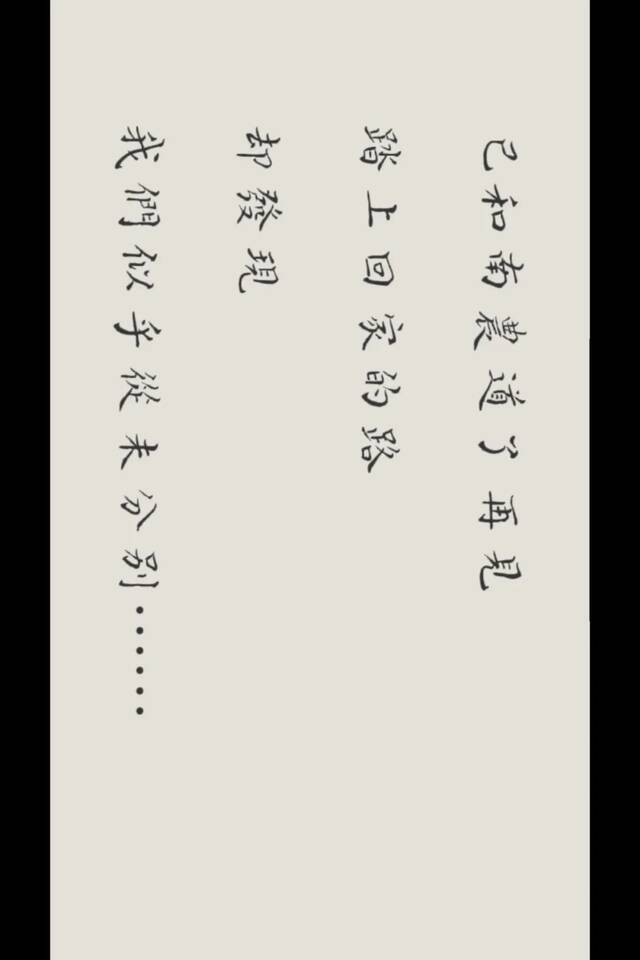 已和南農道了再見
踏上回家的路
却發現
我們似乎從未分別······